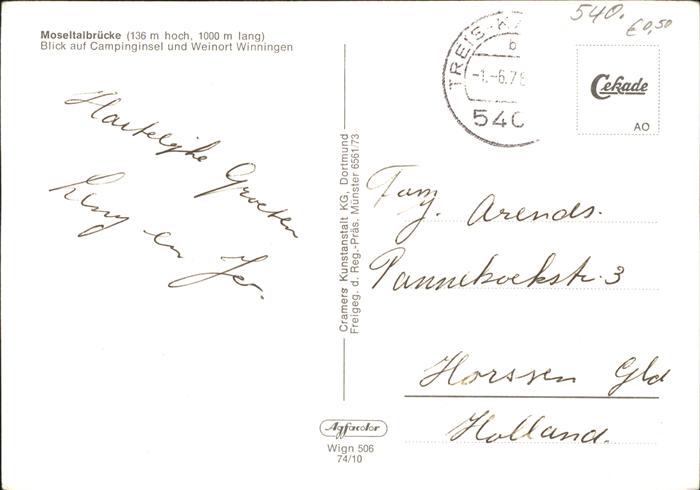 Moseltalbrücke (136 m hoch, 1000 m lang)
Blick auf Campinginsel und Weinort Winningen
Hartelijke Groeten
en
Cramers Kunstanstalt KG, Dortmund
Freigeg. d. Reg.-Präs. Münster 6561/73
Agfacolor
Wign 506
74/10
540.
€0,50
TREIS-KA
b
-1.-6.78
540
Cekade
AO
Fam.
J. Arends.
Pannekoekstr. 3
Horssen Gld
Holland.